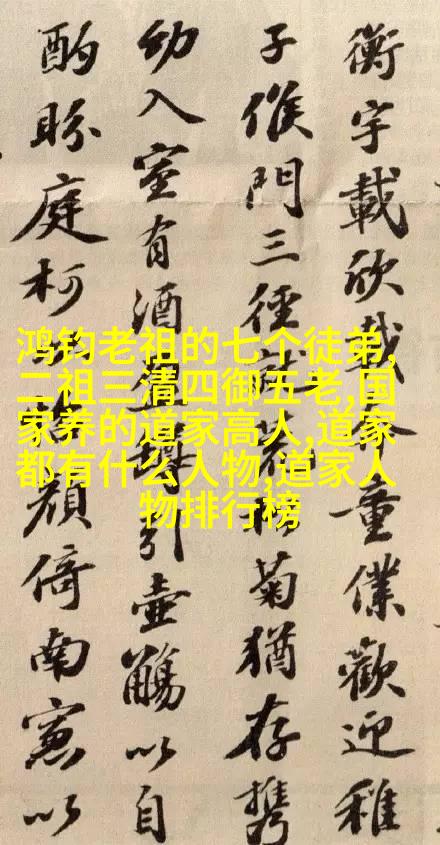 衡宇載欣載奔童僕歡迎稚
子候門三徑就荒松菊猶存携
幼入室有酒盈罇引壺觴以自
酌眄庭柯以怡顔倚南窓以
鸿钧老祖的七个徒弟,
二祖三清四御五老,国
家养的道家高人,道家
都有什么人物,道家人
物排行榜